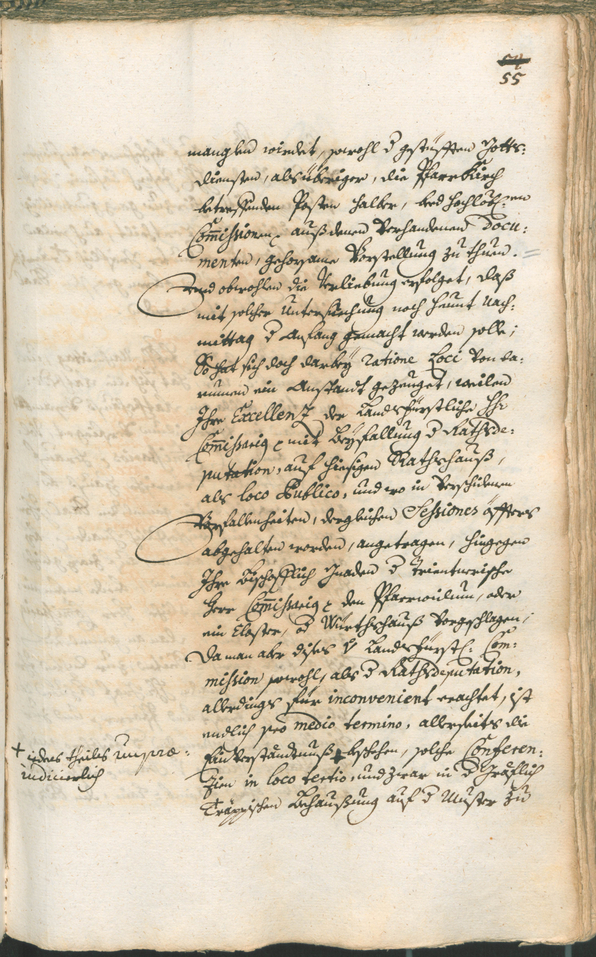 54
55
manglen würdet, sowohl d gestüfften Gotts¬
diensten, als übriger, die Pfarrkürch
betreffenden Posten halber, beed hochlöb: en
Commissionen auß denen verhandenen Docu¬
menten, gehorsame Vorstellung zu thuen. =
Und obwohlen die Verliebung erfolget, daß
mit solcher Untersuechung noch heunt nach¬
mittag d Anfang gemacht werden solle;
So hat sich doch darbey ratione Loci von da¬
rumen ein Anstandt gezeuget, weilen
Ihre Excellenz der Landsfürstliche Hr
Commissarig mit Beyfallung d Raths de¬
putation, auf hiesigen Rathshauß,
als loco Publico, und wo in verschidenen
Vorfallenheiten, dergleichen Sessiones öffters
abgehalten worden, angetragen, hingegen
Ihre Bischöfflich Gnaden d Trientnerische
Herr Commissarig den Pfarrwidum, oder
ein Closter, d Würthshauß vorgeschlagen;
Da man aber dises Landsfürstl: Com¬
mission sowohl, als d Rathsdeputation,
allerdings für inconvenient erachtet, ist
endlich pro medio termino, allerseits die
Einverständtnuß + beschehen, solche Conferen¬
zien in loco tertio, und zwar in d Gräflich
Trappischen Behaußung auf d Muster zu
+ ieders theils unprae¬
iudicierlich